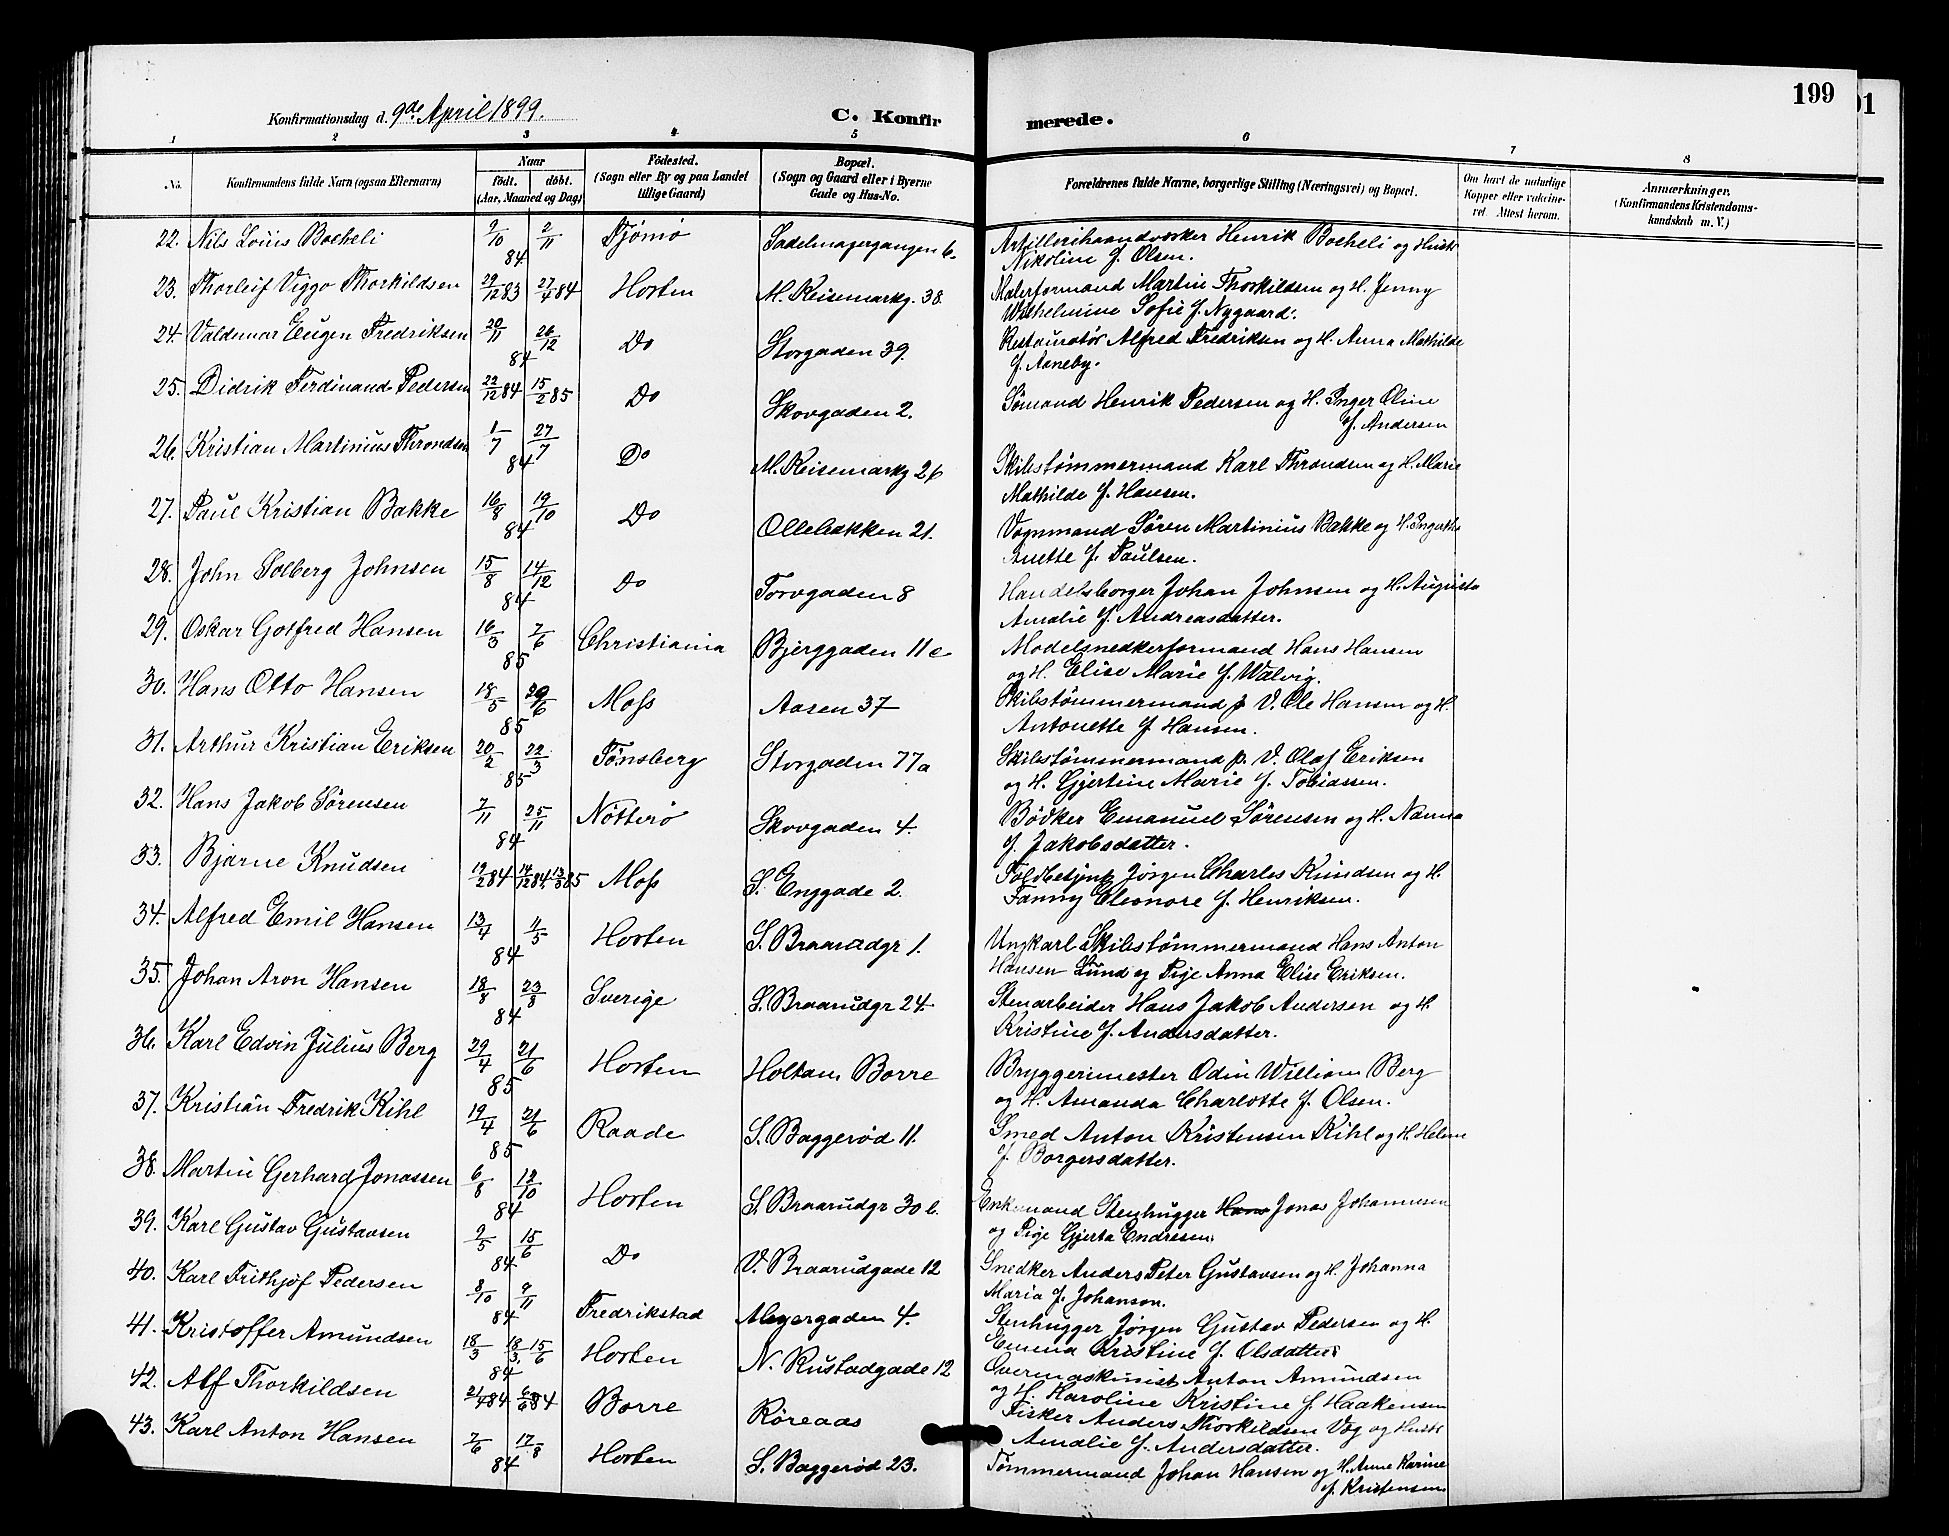 199
01
Konfirmationsdag d. 9de April 1899.
C. Konfirmerede.
1 2 3 4 5 6 7 8
No. Konfirmandens fulde Navn (ogsaa Efternavn) Naar født. døbt. (Aar, Maaned og Dag) Födested. (Sogn eller By og paa Landet tillige Gaard) Bopæl. (Sogn og Gaard eller i Byerne Gade og Hus-No. Forældrenes fulde Navne, borgerlige Stilling (Næringsvei) og Bopæl. Om havt de naturlige Kopper eller vaccineret. Attest herom. Anmærkninger. (Konfirmandens Kristendomskundskab m. V.)
22. Nils Louis Bocheli 9/10 2/11 84 Tjömö Sadelmagergangen 6. Artillerihaandverker Henrik Bocheli og Hustr
Nikoline f. Olsen.
23. Thorleif Viggo Thorkildsen 29/12 83 27/4 84 Horten M. Reisemarkg. 38. Malerformand Martin Thorkildsen og H. Jenny
Wilhelmine Sofie f. Nygaard.
24. Valdemar Eugen Fredriksen 20/11 26/12 84 Do Storgaden 39. Restauratør Alfred Fredriksen og H. Anna Mathilde
f. Aaneby.
25. Didrik Ferdinand Pedersen 22/12 84 15/2 85 Do Skovgaden 2. Sømand Henrik Pedersen og H. Inger Oline
f. Andersen
26. Kristian Martinius Throndsen 1/7 27/7 84 Do M. Reisemarkg 26 Skibstømmermand Karl Throndsen og H. Marie
Mathilde f. Hansen.
27. Paul Kristian Bakke 16/8 19/10 84 Do Ollebakken 21. Vognmand Søren Martinius Bakke og H.
Anette f. Paulsen.
28. John Solberg Johnsen 15/8 14/12 84 Do Torvgaden 8 Handelsborger Johan Johnsen og H. Augusta
Amalie f. Andreasdatter.
29. Oskar Gotfred Hansen 16/3 7/6 85 Christiania Bjerggaden 11 c Modelsnedkerformand Hans Hansen
og H. Elise Marie f. Walvig.
30. Hans Otto Hansen 18/5 29/6 85 Moss Aasen 37 Skibstømmermand p V. Ole Hansen og H.
Antonette f Hansen.
31. Arthur Kristian Eriksen 20/2 22/3 85 Tønsberg Storgaden 77a Skibstømmermand p. V. Olaf Eriksen
og H. Gjertine Marie f. Tobiassen.
32. Hans Jakob Sørensen 7/11 25/11 84 Nötterö Skovgaden 4. Bödker Emanuel Sørensen og H. Nanna
f. Jakobsdatter.
33. Bjarne Knudsen 19/2 84 14/12 84 85 Moss S. Enggade 2. Toldbetjent Jørgen Charles Knudsen og H.
Fanny Eleonore f. Henriksen.
34. Alfred Emil Hansen 13/4 11/5 84 Horten S. Braarudgr 1. Ungkarl Skibstømmermand Hans Anton
Hansen Lund og Pige Anna Elise Eriksen.
35. Johan Aron Hansen 18/8 23/8 84 Sverige S. Braarudgr 24 Stenarbeider Hans Jakob Andersen og H.
Kristine f. Andersdatter.
36. Karl Edvin Julius Berg 29/4 21/6 85 Horten Holtan, Borre Bryggerimester Odin William Berg
og H. Amanda Charlotte f. Olsen.
37. Kristian Fredrik Kihl 19/4 21/6 85 Raade S. Baggerød 11. Smed Anton Kristensen Kihl og H. Helene
f. Borgersdatter.
38. Martin Gerhard Jonassen 6/8 12/10 84 Horten S. Braarudgr 30 b. Enkemand Stenhugger Hans Jonas Johannesen
og Pige Gjerta Endresen.
39. Karl Gustav Gustavsen 2/5 15/6 84 Do V. Braarudgade 12 Snedker Anders Peter Gustavsen og H. Johanna
Maria f. Johanson.
40. Karl Frithjof Pedersen 3/10 9/11 84 Fredrikstad Meyergaden 4. Stenhugger Jørgen Gustav Pedersen og H.
Emma Kristine f. Olsdatter
41. Kristoffer Amundsen 18/3 18/3, 15/6 84 Horten N. Rustadgade 12 Overmaskinist Anton Amundsen
og H. Karoline Kristine f Haakensen
42. Alf Thorkildsen 21/4 84 6/6 84 Borre Röreaas Fisker Anders Thorkildsen Væg og Hustr
Amalie f. Andersdatter.
43. Karl Anton Hansen 7/6 17/8 84 Horten S. Baggerød 23. Tömmermand Johan Hansen og H. Anne Karine
f. Kristensen